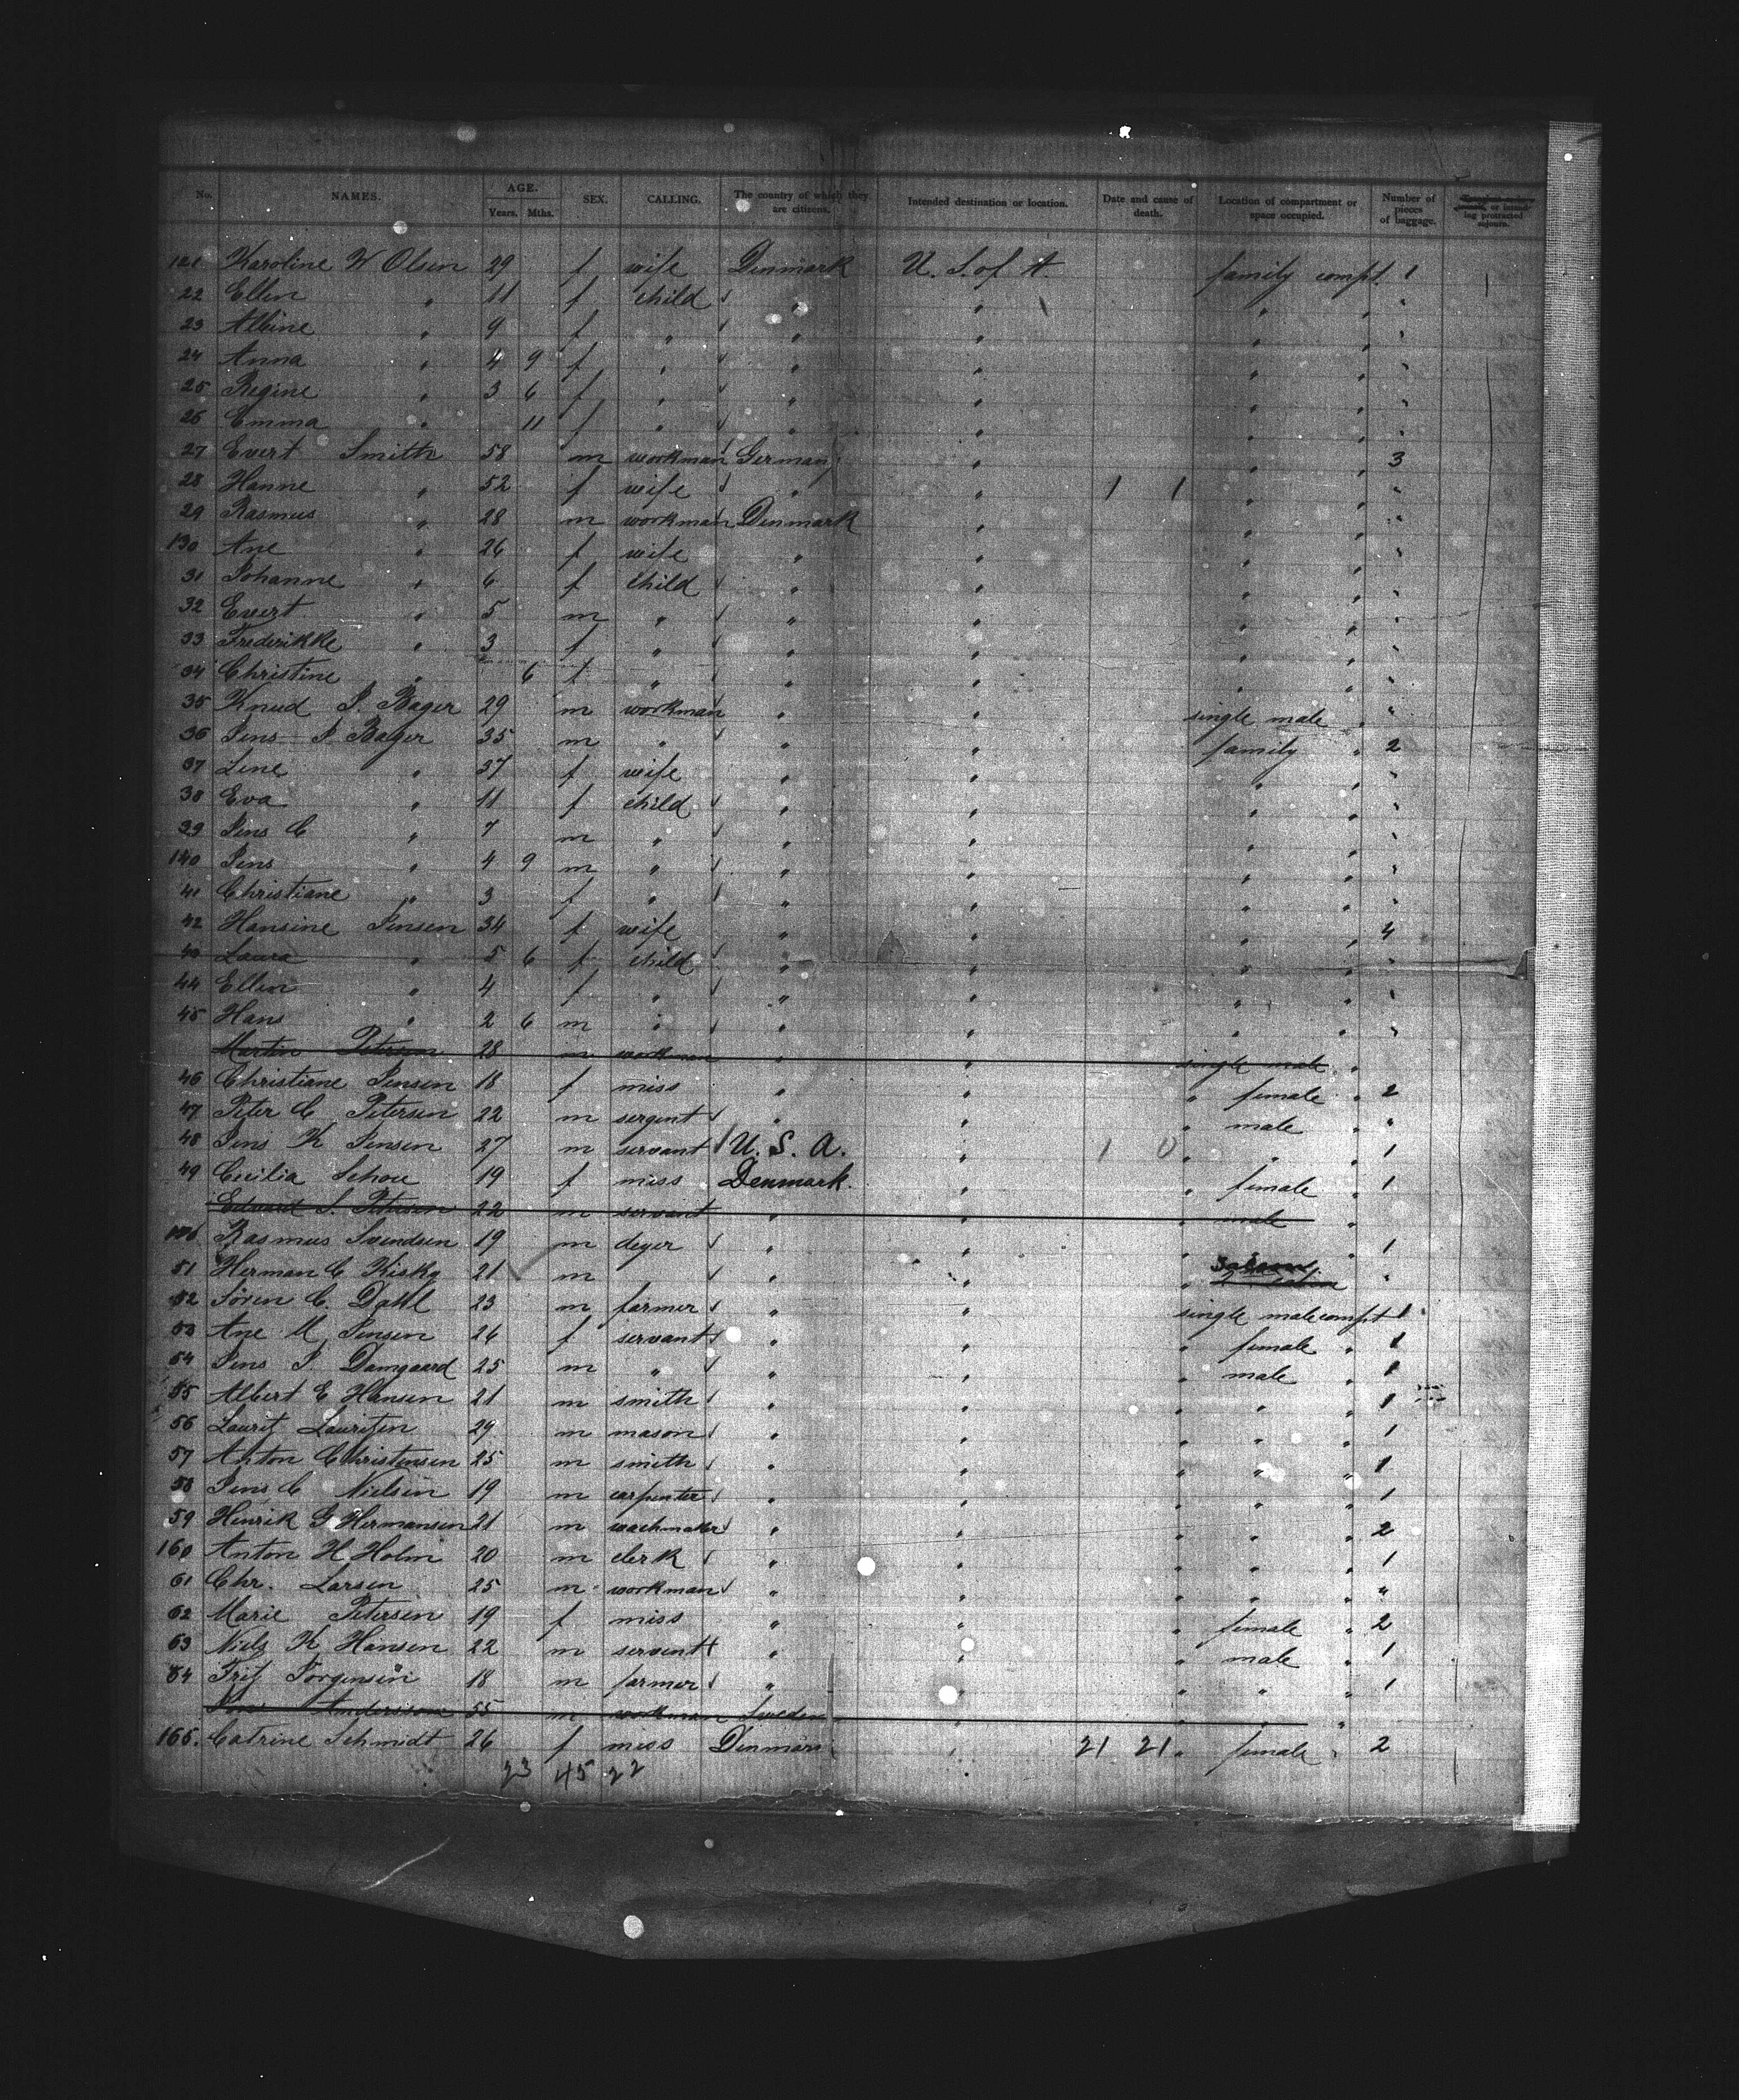 No. NAMES. AGE. Years. Mths. SEX. CALLING. The country of which they are citizens. Intended destination or location. Date and cause of death. Location of compartment or space occupied. Number of pieces of baggage. or intending protracted sojourn.
121 Karoline W Olsen 29 f wife Denmark U. S. of A. family compt. 1
22 Ellen " 11 f child " " " " "
23 Albine " 9 f " " " " " "
24 Anna " 4 9 f " " " " " "
25 Regine " 3 6 f " " " " " "
26 Emma " 11 f " " " " " "
27 Evert Smith 58 m workman Germany " " " 3
28 Hanne " 52 f wife " " 1 1 " " "
29 Rasmus " 28 m workman Denmark " " " "
130 Ane " 26 f wife " " " " "
31 Johanne " 6 f child " " " " "
32 Evert " 5 m " " " " " "
33 Frederikke " 3 f " " " " " "
34 Christine " 6 f " " " " " "
35 Knud J. Bager 29 m workman " " single male " "
36 Jens J. Bager 35 m " " " family " 2
37 Lene " 37 f wife " " " " "
38 Eva " 11 f child " " " " "
39 Jens C " 7 m " " " " " "
140 Jens " 4 9 m " " " " " "
41 Christiane " 3 f " " " " " "
42 Hansine Jensen 34 f wife " " " " 4
43 Laura " 5 6 f child " " " " "
44 Ellen " 4 f " " " " " "
45 Hans " 2 6 m " " " " " "
Martin Petersen 28 m workman " " single male "
46 Christiane Jensen 18 f miss " " " female " 2
47 Peter C Petersen 22 m sergent " " " male " "
48 Jens K Jensen 27 m servant U. S. A. " 1 0 " " " 1
49 Cecilia Schou 19 f miss Denmark. " " female " 1
Edvard S. Petersen 22 m servant " " " male "
Rasmus Svendsen 19 m deyer " " " " 1
51 Herman C Kisky 21 m " " " Saloon "
52 Søren C. Dahl 23 m farmer " " single male compt 1
53 Ane M Jensen 26 f servant " " " female " 1
54 Jens P. Damgaard 25 m " " " " male " 1
55 Albert E Hansen 21 m smith " " " " " 1
56 Laurit Lauritzen 29 m mason " " " " " 1
57 Anton Christensen 25 m smith " " " " " 1
58 Jens C Nielsen 19 m carpenter " " " " " 1
59 Henrik G Hermansen 21 m wachmaker " " " " " 2
160 Anton H Holm 20 m clerk " " " " " 1
61 Chr. Larsen 25 m workman " " " " " "
62 Marie Petersen 19 f miss " " " female " 2
63 Niels K Hansen 22 m servent " " " male " 1
64 Fritz Jorgensen 18 m farmer " " " " " 1
Andersson 55 m workman Sweden " " " "
165. Catrine Schmidt 26 f miss Denmark " 21 21 " female " 2
23 45 22